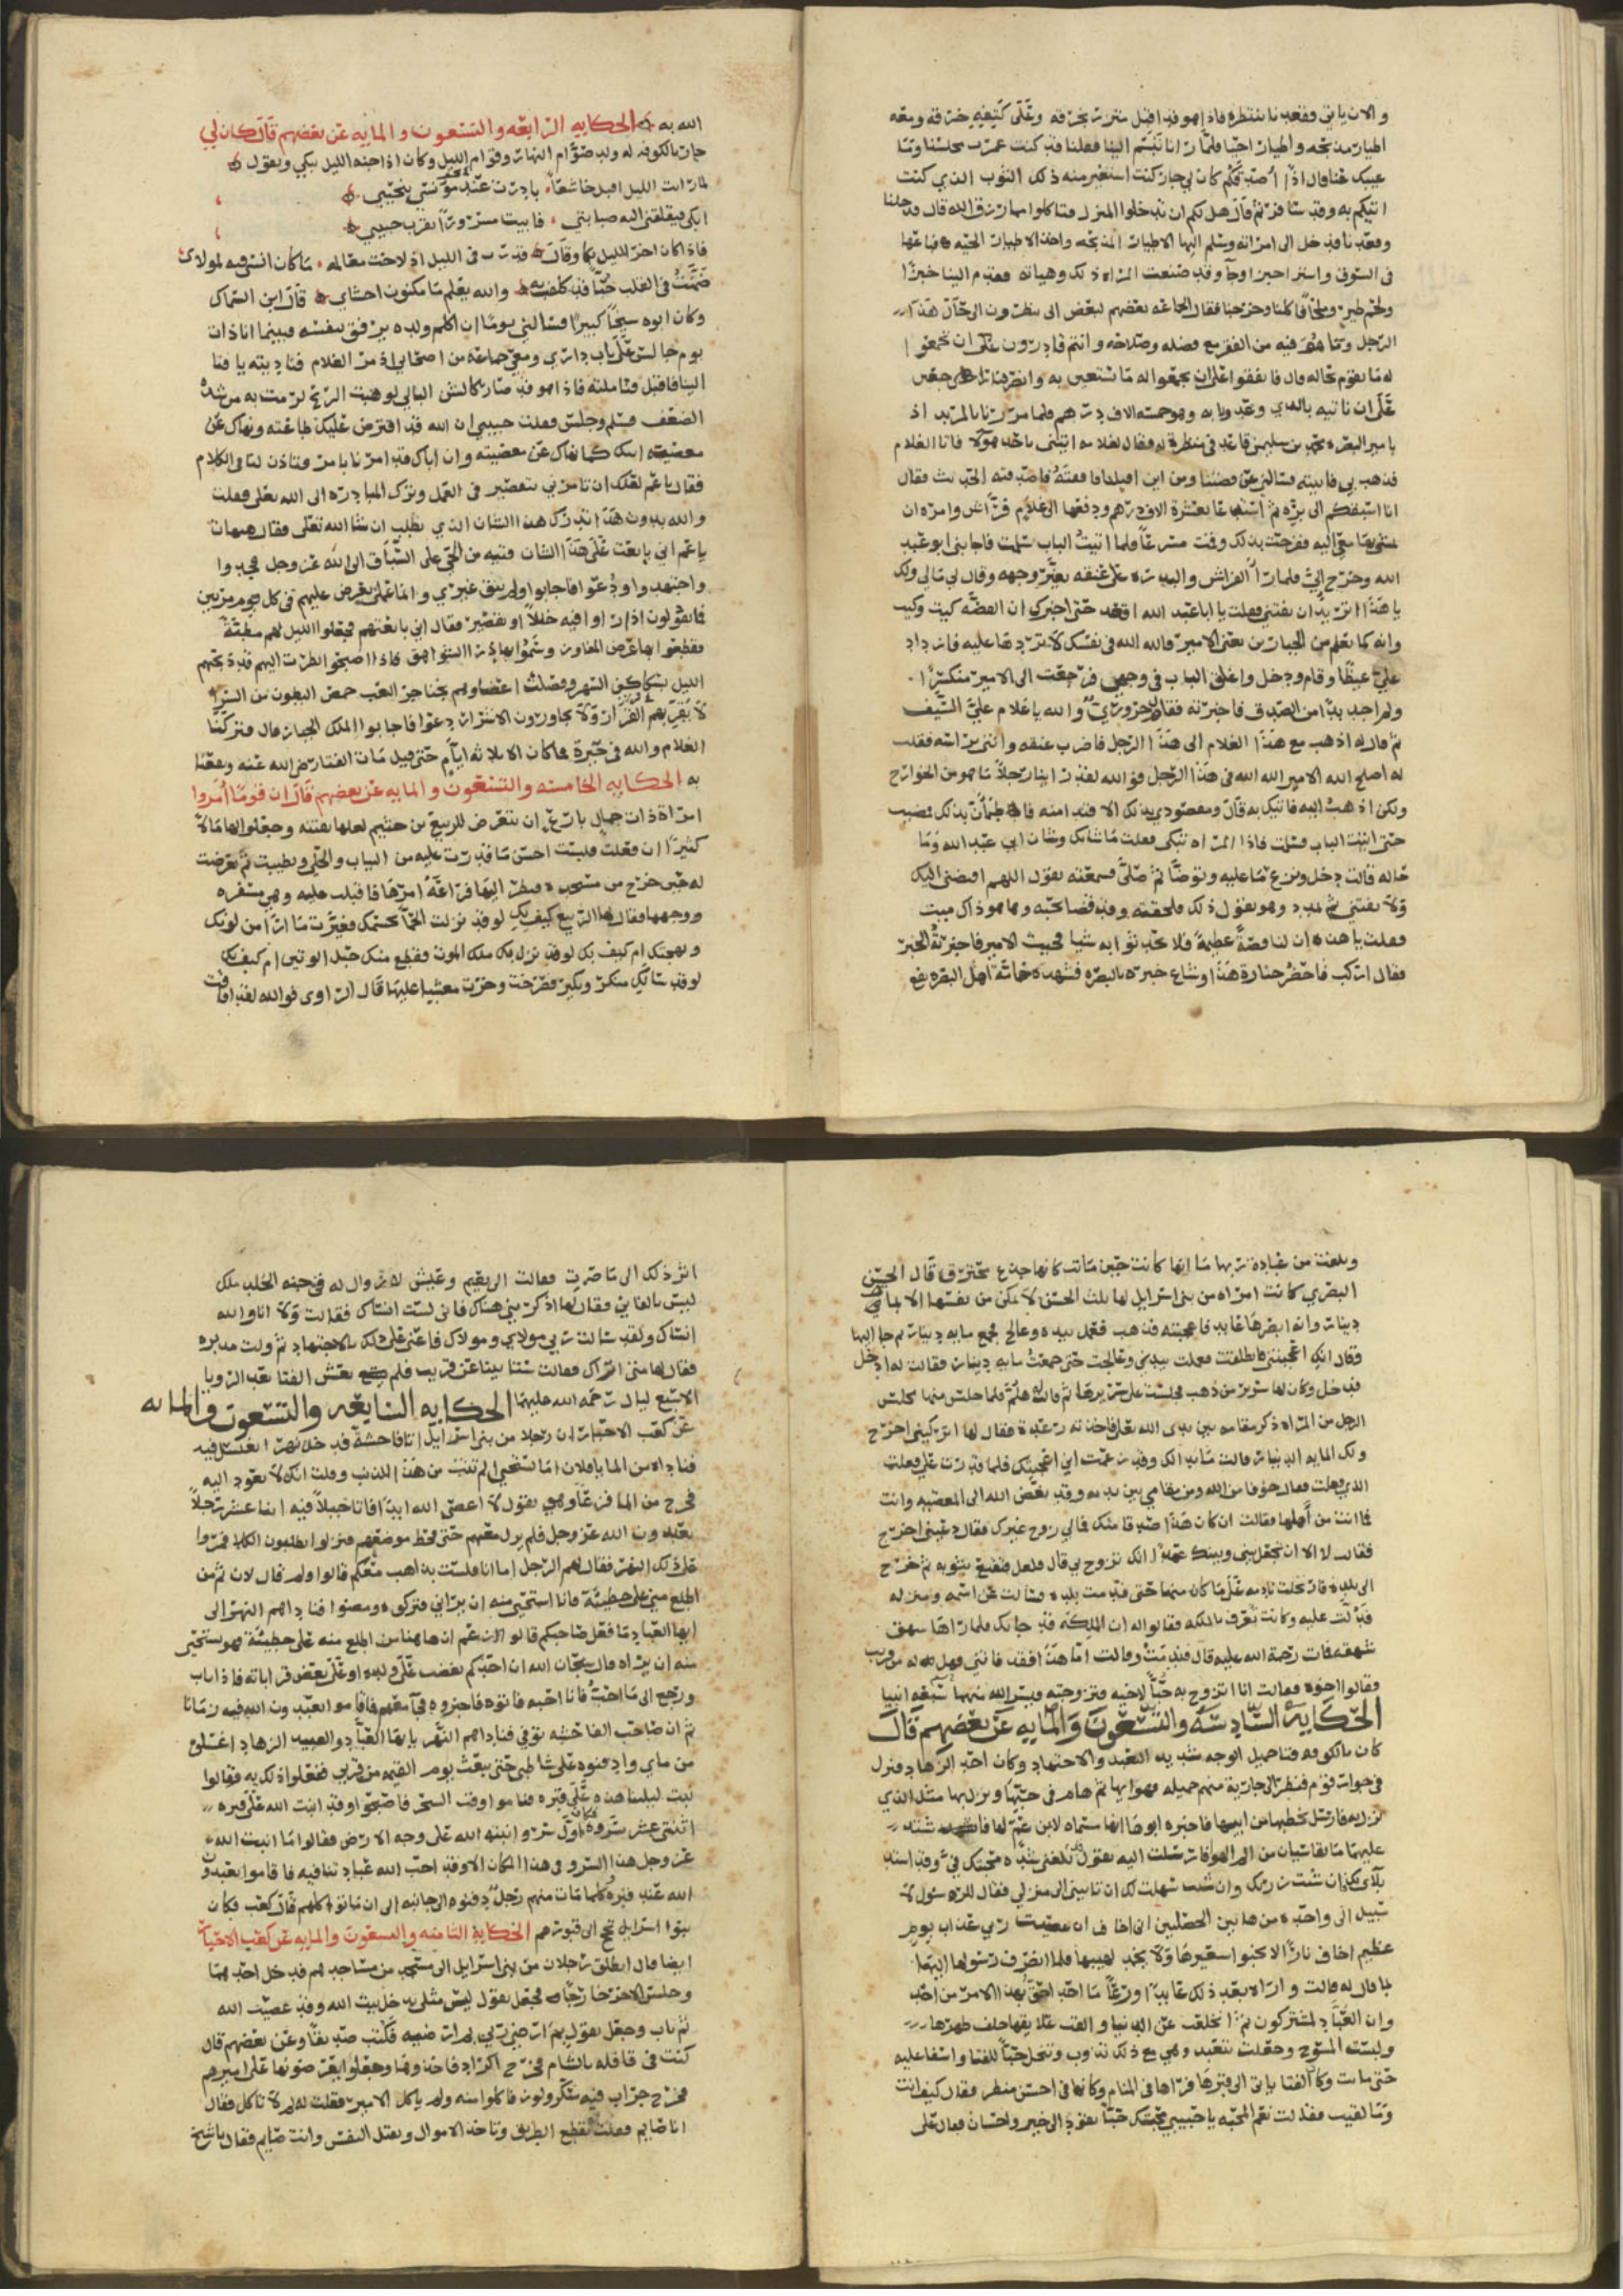 والان ياتي فقعدنا ننتظره فاذا هو قد اقبل متزر بخرقه وعلى كتفيه خرقه ومعه
اطيار مذبحه واطيار احيا فلما رانا تبسم الينا فقلنا قد كنت عمرت مجلسنا وما
غيبك عنا قال اذا اصدقكم كان لي جار كنت استعير منه ذلك الثوب الذي كنت
اتيكم به وقد سافر ثم قال هل لكم ان تدخلوا المنزل فتاكلوا مما رزق الله قال فدخلنا
وقعدنا فدخل الى امراته وسلم اليها الاطيار المذبحه واخذ الاطيار الحيه فباعها
في السوق واشترا خبزا وجا وقد صنعت المراه ذلك وهياته فقدم الينا خبزا
ولحم طير وملحا فاكلنا وخرجنا فقال الجماعه بعضهم لبعض الى تنظرون الى حال هذا
الرجل وما هو فيه من الفقر مع فضله وصلاحه وانتم قادرون على ان تجمعوا
له ما يقوم بحاله قال فاتفقوا على ان يجمعوا له ما يستعين به وانصرفنا
على ان ناتيه بالذي وعد وبابه وهو خمسه الاف درهم فلما مررنا بالمربد اذ
بامير البصره محمد بن سليمن قاعد في منظرة له فقال لغلامه ايتني باحد هولا فاتا الغلام
فذهب بي فاتيته فسالني عن قصتنا ومن اين اقبلنا فصدقته الحديث فقال
انا اسبقكم الى بره ثم استدعا بعشرة الاف درهم ودفعها الى غلام فراش وامره ان
يمضي معي اليه ففرحت بذلك وقمت مسرعا فلما اتيت الباب سلمت فاجابني ابو عبد
الله وخرج الي فلما را الفراش والبدره على عنقه تغير وجهه وقال لي مالي ولك
يا هذا اتريد ان تفتني فقلت يا ابا عبد الله اقعد حتى اخبرك ان القصه كيت وكيت
وانه كما تعلم من الجبارين يعني الامير فالله الله في نفسك لا تردها عليه فازداد
علي غيظا وقام ودخل واغلق الباب في وجهي فرجعت الى الامير منكسرا
ولم اجد بدا من الصدق فاخبرته فقال حروري والله يا غلام علي السيف
ثم قال له اذهب مع هذا الغلام الى هذا الرجل فاضرب عنقه واتني براسه فقلت
له اصلح الله الامير الله الله في هذا الرجل فوالله لقد راينا رجلا ما هو من الخوارج
ولكن اذهب اليه فاتيك به قال ومقصودي بذلك الا فتدا منه فاطمأن بذلك فمضيت
حتى اتيت الباب فسلمت فاذا المراه تبكي فقلت ما شانك وشان ابي عبد الله وما
حاله قالت دخل ونزع ما عليه وتوضا ثم صلى فسمعته يقول اللهم اقبضني اليك
ولا تفتني ثم تمدد وهو يقول ذلك فلحقته وقد قضا نحبه وها هو ذاك ميت
فقلت يا هذه ان لنا قصة عظيمة فلا تحدثوا به شيا فجيت الامير فاخبرته الخبر
فقال اركب فاحضر جنازة هذا وشاع خبره بالبصره فشهده عامة اهل البصره نفع
الله به الحكايه الرابعه والتسعون والمايه عن بعضهم قال كان لي
جار بالكوفه له ولد صوام النهار وقوام الليل وكان اذا جنه الليل يبكي ويقول
لما رايت الليل اقبل خاشعا بادرت عند مونسي بنحيبي
ابكي فيقلقني اليه صبابتي فابيت مسرورا بقرب حبيبي
فاذا كان اخر الليل بكا وقال قدرت في الليل اذ لاحت معالمه ما كان انسي فيه لمولاي
ضمنت في القلب حبا قد كلفت به والله يعلم ما مكنون احشاي قال ابن السماك
وكان ابوه شيخا كبيرا فسالني يوما ان اكلم ولده يرفق بنفسه فبينما انا ذات
يوم جالس على باب داري ومعي جماعه من اصحابي اذ مر الغلام فناديته يا فتا
الينا فاقبل فتاملته فاذا هو قد صار كالشن البالي لو هبت الريح لرمت به من شدة
الضعف فسلم وجلس فقلت حبيبي ان الله قد افترض عليك طاعته ونهاك عن
معصية ابيك كما نهاك عن معصيته وان اباك قد امرنا بامر فتاذن لنا في الكلام
فقال يا عم لعلك ان تامرني بتقصير في العمل وترك المبادره الى الله تعلى فقلت
والله بدون هذا تدرك هذا الشان الذي تطلب ان شا الله تعلى فقال هيهات
يا عم اني بايعت على هذا الشان فتيه من الحي على السباق الى الله عز وجل فجدوا
واجتهدوا ودعوا فاجابوا ولم يبق غيري وانما عملي يعرض عليهم في كل يوم مرتين
فما يقولون اذا راوا فيه خللا او تقصير فقال اني بايعتهم فجعلوا الليل لهم مطية
فقطعوا بها عرض المفاوز وسموا بها ذرا الشواهق فاذا اصبحوا نظرت اليهم قد ذبحتهم
الليل بسكاكين السهر وفصلت اعضاوهم بخناجر التعب خمص البطون من السرا
لا يقر بهم القرار ولا يجاورون الاشرار دعوا فاجابوا الملك الجبار قال فتركنا
الغلام والله في حيرة فما كان الا ثلاثه ايام حتى قيل مات الفتا رضي الله عنه ونفعنا
به الحكايه الخامسه والتسعون والمايه عن بعضهم قال ان قوما أمروا
امراة ذات جمال بارع ان تتعرض للربيع بن خثيم لعلها تفتنه وجعلوا لها مالا
كثيرا ان فعلت فلبست احسن ما قدرت عليه من الثياب والحلي وتطيبت ثم تعرضت
له حين خرج من مسجده فنظر اليها فراعه امرها فاقبلت عليه وهي مسفره
ووجهها فقال لها الربيع كيف بك لو قد نزلت الحمى بجسمك فغيرت ما ارا من لونك
وبهجتك ام كيف بك لو قد نزل بك ملك الموت فقطع منك حبل الوتين ام كيف بك
لو قد سالك منكر ونكير فصرخت وخرت مغشيا عليها قال الراوي فوالله لقد افاقت
وبلغت من عبادة ربها ما انها كانت حين ماتت كانها جذع محترق قال الحسن
البصري كانت امراه من بني اسرايل لها ثلث الحسن لا تمكن من نفسها الا بمايه
دينار وانه ابصرها عابد فاعجبته فذهب فعمل بيده وعالج فجمع مايه دينار ثم جا اليها
وقال انك اعجبتني فانطلقت فعملت بيدي وعالجت حتى جمعت مايه دينار فقالت له ادخل
فدخل وكان لها سرير من ذهب فجلست على سريرها ثم قالت له هلم فلما جلس منها مجلس
الرجل من المراه ذكر مقامه بين يدي الله تعلى فاخذته رعدة فقال لها اتركيني اخرج
ولك المايه الدينار قالت ما بدا لك وقد زعمت اني اعجبتك فلما قدرت علي فعلت
الذي فعلت فقال خوفا من الله ومن مقامي بين يديه وقد بغض الله الي المعصيه وانت
فما انت من اهلها فقالت ان كان هذا صدقا منك فمالي زوج غيرك فقال دعيني اخرج
فقالت لا الا ان تجعل بيني وبينك عهدا انك تزوج بي قال فلعل فتقنع بثوبه ثم خرج
الى بلده فارتحلت نادمه على ما كان منها حتى قدمت بلده فسالت عن اسمه ومنزله
فدلت عليه وكانت تعرف بالملكه فقالوا له ان الملكه قد جاتك فلما راها شهق
شهقه فمات رحمة الله عليه قال فندمت وقالت اما هذا فقد فاتني فهل له من قريب
فقالوا اخوه فقالت انا اتزوج به حبا لاخيه فتزوجته فيسر الله منهما سبعه انبيا
الحكايه السادسه والتسعون والمايه عن بعضهم قال
كان بالكوفه فتا جميل الوجه شديد التعبد والاجتهاد وكان احد الزهاد فنزل
في جوار قوم فنظر الى جارية منهم جميله فهواها ثم هام في حبها ونزل بها مثل الذي
نزل به فارسل يخطبها من ابيها فاخبره ابوها انها مسماه لابن عم لها فاشتد
عليهما ما يقاسيان من الم الهوا فارسلت اليه تقول قد بلغني شدة محبتك لي وقد اشتد
بلاي بك فان شيت زرتك وان شيت سهلت لك ان تاتيني الى منزلي فقال للرسول لا
سبيل الى واحدة من هاتين الخصلتين اني اخاف ان عصيت ربي عذاب يوم
عظيم اخاف نارا لا يخبوا سعيرها ولا يخمد لهيبها فلما انصرف رسولها اليها
بما قال له قالت واراه بعد ذلك عابدا ورعا ما احد احق بهذا الامر من احد
وان العباد لمشتركون ثم انخلعت عن الدنيا والقت علايقها خلف ظهرها
ولبست المسوح وجعلت تتعبد وهي مع ذلك تذوب وتنحل حبا للفتا واسفا عليه
حتى ماتت وكان الفتا ياتي الى قبرها فراها في المنام وكانها في احسن منظر فقال كيف انت
وما لقيت فقالت نعم المحبه يا حبيبي محبتك حبا يقود الى خير واحسان فقال على
اثر ذلك الى ما صرت فقالت الى نعيم وعيش لا زوال له في جنه الخلد ملك
ليس بالفاني وقال لها اذكريني هناك فاني لست انساك فقالت ولا انا والله
انساك ولقد سالت ربي مولاي ومولاك فاعني على ذلك بالاجتهاد ثم ولت مدبره
فقال لها متى اراك فقالت ستاتينا عن قريب فلم يعش الفتا بعد الرويا
الا سبع ليال رحمه الله عليهما الحكايه السابعه والتسعون والمايه
عن كعب الاحبار ان رجلا من بني اسرايل اتا فاحشة فدخل نهرا يغتسل فيه
فناداه من الما يا فلان اما تستحي الم تتب من هذا الذنب وقلت انك لا تعود اليه
فخرج من الما فزعا وهو يقول لا اعصي الله ابدا فاتا جبلا فيه اثنا عشر رجلا
يعبدون الله عز وجل فلم يزل معهم حتى قحط موضعهم فنزلوا يطلبون الكلا فمروا
على ذلك النهر فقال لهم الرجل اما انا فلست بذاهب معكم قالوا ولم قال لان ثم من
اطلع مني على خطيئة فانا استحي منه ان يراني فتركوه ومضوا فناداهم النهر الى
ايها العباد ما فعل صاحبكم قالوا زعم ان هاهنا من اطلع منه على خطيئة فهو يستحي
منه ان يراه قال سبحان الله ان احدكم يغضب على ولده او على بعض قراباته فاذا تاب
ورجع الى ما احب فانا احبه فاتوه فاخبروه فجا معهم فاقاموا يعبدون الله فيه زمانا
ثم ان صاحب الفاحشه توفي فناداهم النهر يا ايها العباد والعبيد الزهاد اغسلوه
من ماي وادفنوه على شاطي حتى يبعث يوم القيمه من قربي ففعلوا ذلك به فقالوا
نبيت ليلتنا هذه على قبره فناموا وقت السحر فاصبحوا وقد انبت الله على قبره
اثنتي عشر سروه فكان اول سرو انبته الله على وجه الارض فقالوا ما انبت الله
عز وجل هذا السرو في هذا المكان الا وقد احب الله عبادتنا فيه فاقاموا يعبدون
الله عند قبره كلما مات منهم رجل دفنوه الى جانبه الى ان ماتوا كلهم قال كعب فكان
بنوا اسرايل تحج الى قبورهم الحكايه الثامنه والتسعون والمايه عن كعب الاحبار
ايضا قال انطلق رجلان من بني اسرايل الى مسجد من مساجدهم فدخل احدهما
وجلس الاخر خارجا فجعل يقول ليس مثلي يدخل بيت الله وقد عصيت الله
ثم تاب وجعل يقول بم ارضي ربي فكتب صديقا وعن بعضهم قال
كنت في قافله بالشام فخرج اكراد فاخذونا وجعلوا يعرضونها على اميرهم
فخرج جراب فيه سكر ولوز فاكلوا منه ولم ياكل الامير فقلت له لم لا تاكل فقال
انا صايم فقلت تقطع الطريق وتاخذ الاموال وتقتل النفس وانت صايم فقال يا شيخ